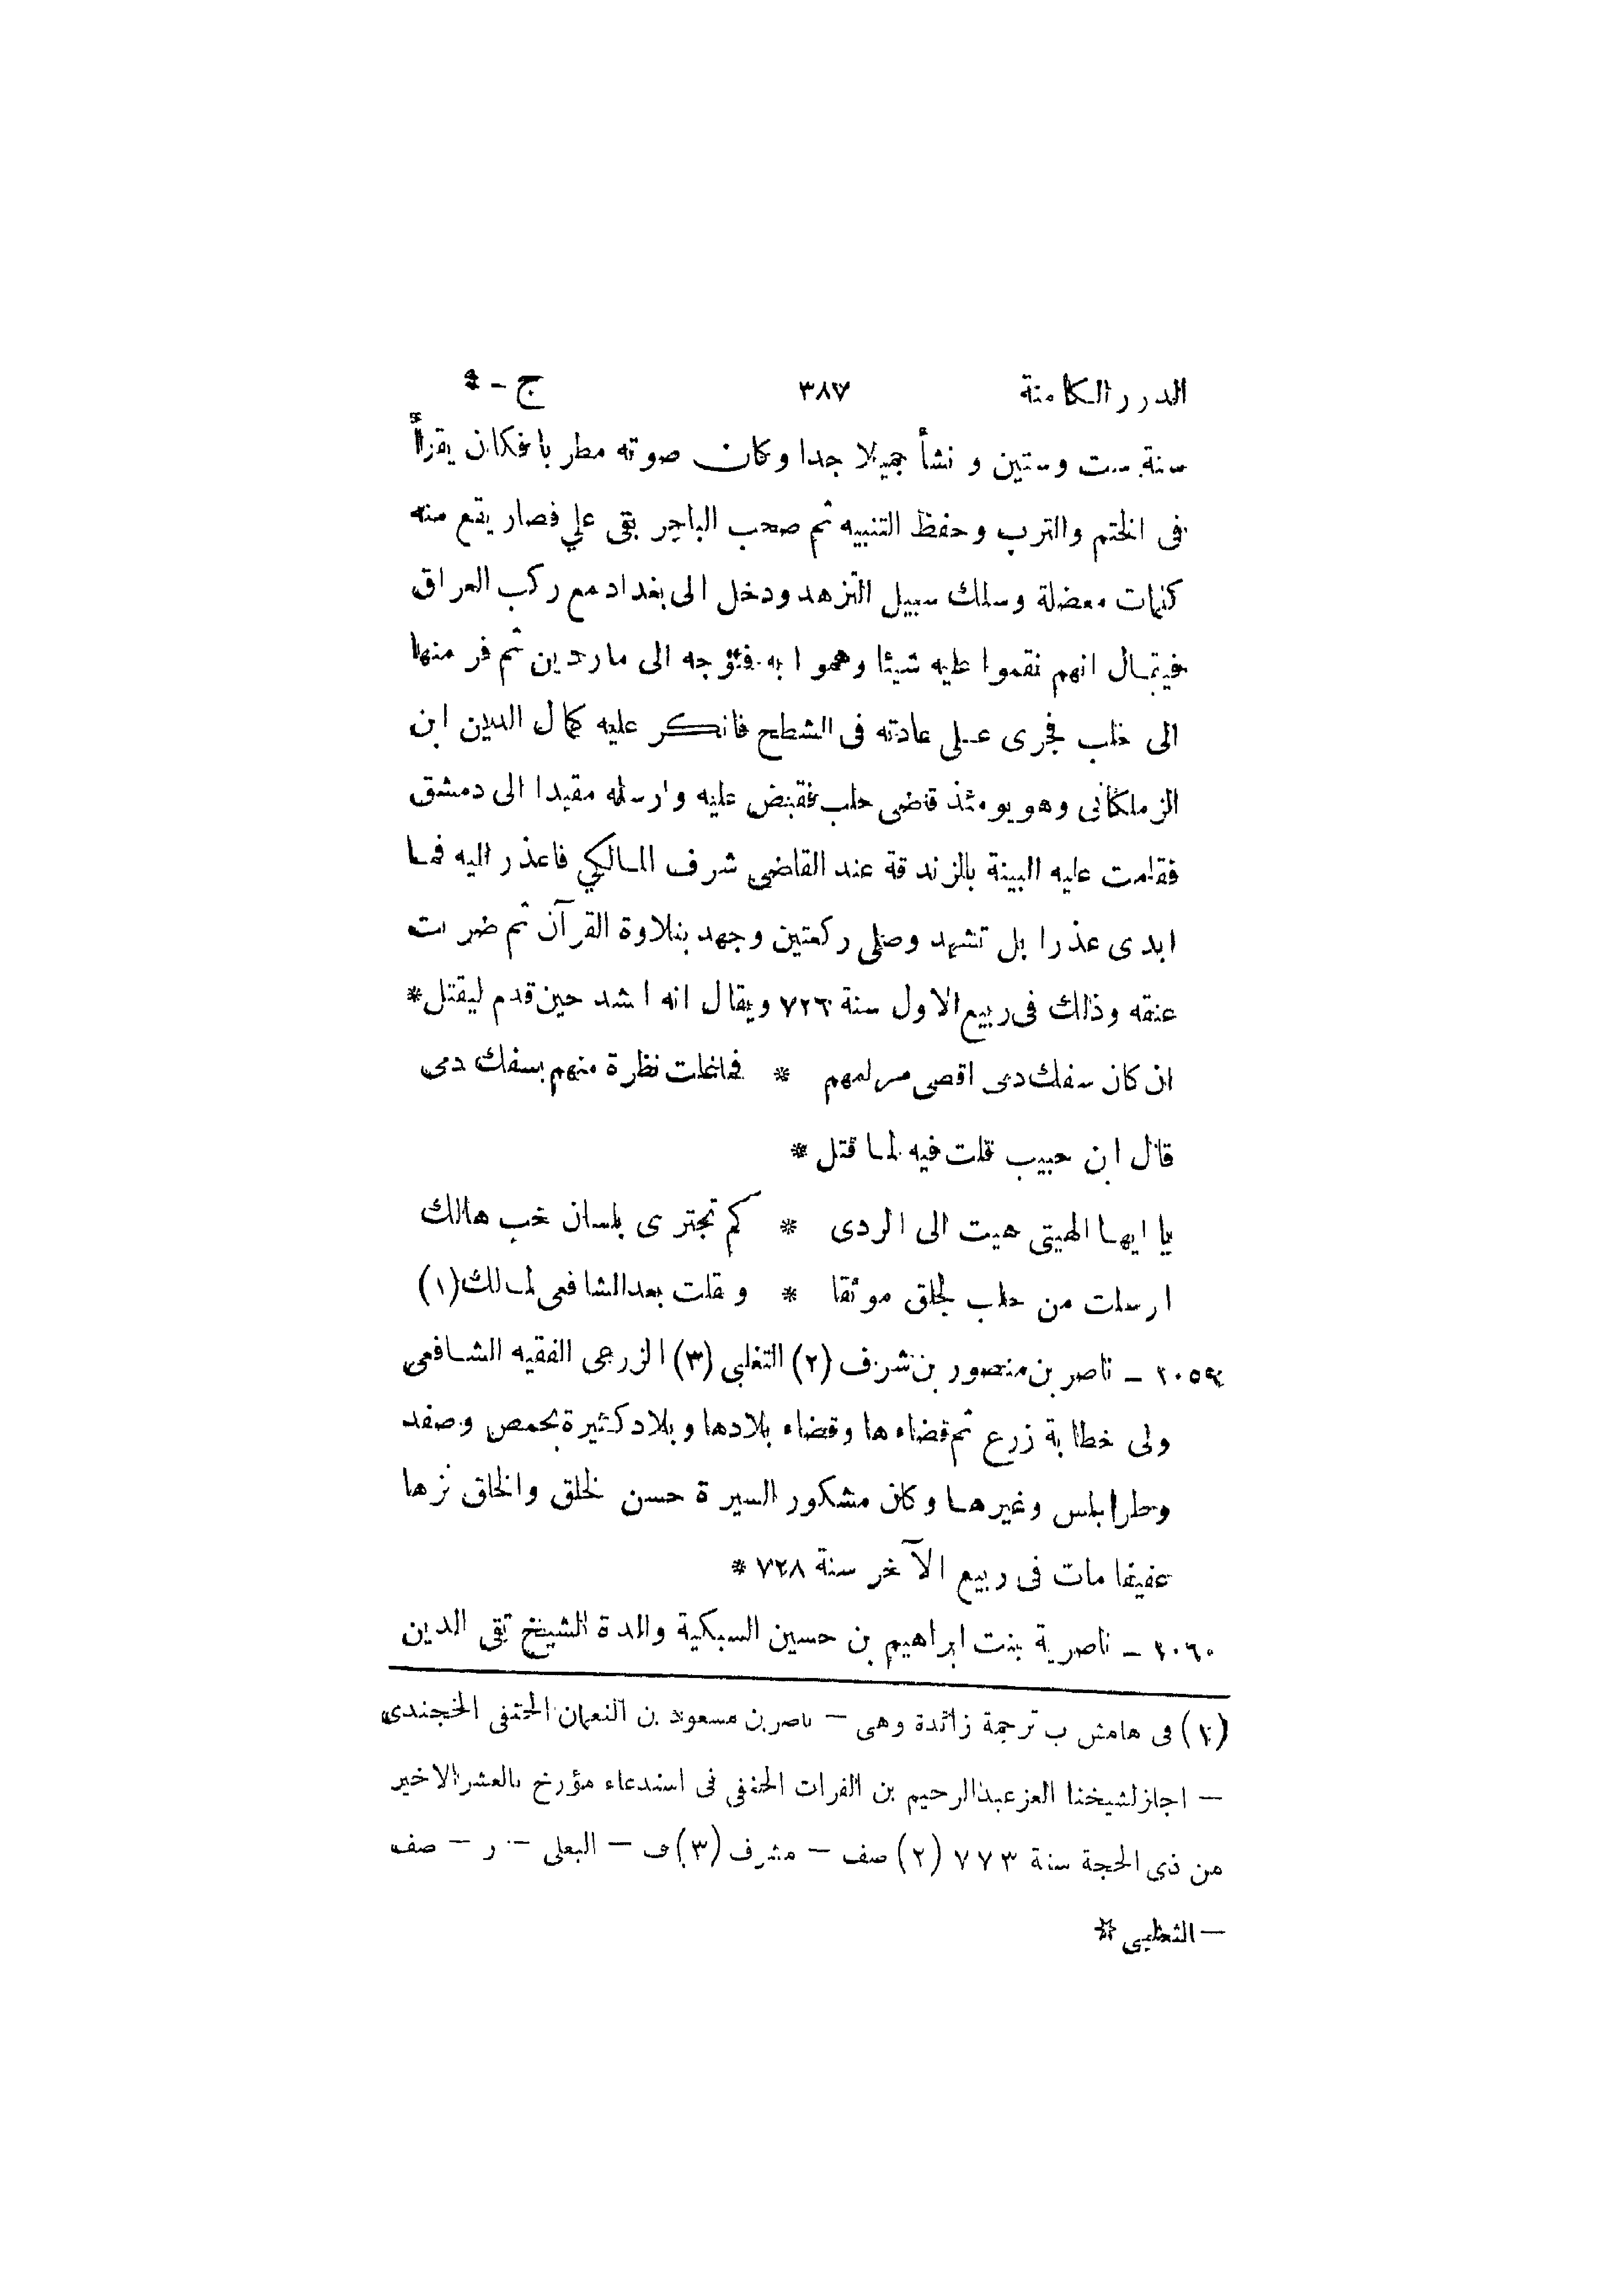 الدرر الكامنة ٣٨٧ ج - ٤
سنة ست وستين و نشأ جميلا جدا وكان صوته مطر با فكان يقرأ
فى الختم والترب وحفظ التنبيه ثم صحب الباجر بقى على فصار يقع منه
كلمات معضلة وسلك سبيل التزهد ودخل الى بغداد مع ركب العراق
فيقال انهم نقموا عليه شيئا وهموا به فتوجه الى ماردين ثم فر منها
الى حلب فجرى على عادته فى الشطح فانكر عليه كمال الدين ابن
الزملكانى وهو يومئذ قاضى حلب فقبض عليه وارسله مقيدا الى دمشق
فقامت عليه البينة بالزندقة عند القاضى شرف المالكي فاعذر اليه فما
ابدى عذرا بل تشهد وصلى ركعتين وجهد بتلاوة القرآن ثم ضربت
عنقه وذلك فى ربيع الاول سنة ٧٢٦ ويقال انه انشد حين قدم ليقتل *
ان كان سفك دمى اقصى مرامهم * فما غلت نظرة منهم بسفك دمى
قال ابن حبيب قلت فيه لما قتل *
يا ايها الهيتى هيت الى الردى * كم تجترى بلسان خب هالك
ارسلت من حلب لجلق موثقا * و قلت بعد الشافعى لمالك (١)
٢٠٥٩ - ناصر بن منصور بن شرف (٢) التغلبى (٣) الزرعى الفقيه الشافعى
ولى خطابة زرع ثم قضاءها وقضاء بلادها وبلاد كثيرة بحمص وصفد
وطرابلس وغيرها وكان مشكور السيرة حسن الخلق والخلق نزها
عفيفا مات فى ربيع الآخر سنة ٧٢٨ *
٢٠٦٠ - ناصرية بنت ابراهيم بن حسين السبكية والدة الشيخ تقى الدين
(١) فى هامش ب ترجمة زائدة وهى - ناصر بن مسعود بن النعمان الحنفى الخجندى
- اجاز لشيخنا العز عبدالرحيم بن الفرات الحنفى فى استدعاء مؤرخ بالعشر الاخير
من ذى الحجة سنة ٧٧٣ (٢) صف - مشرف (٣) ف - البعلى - ر - صف
- الثعلبى *